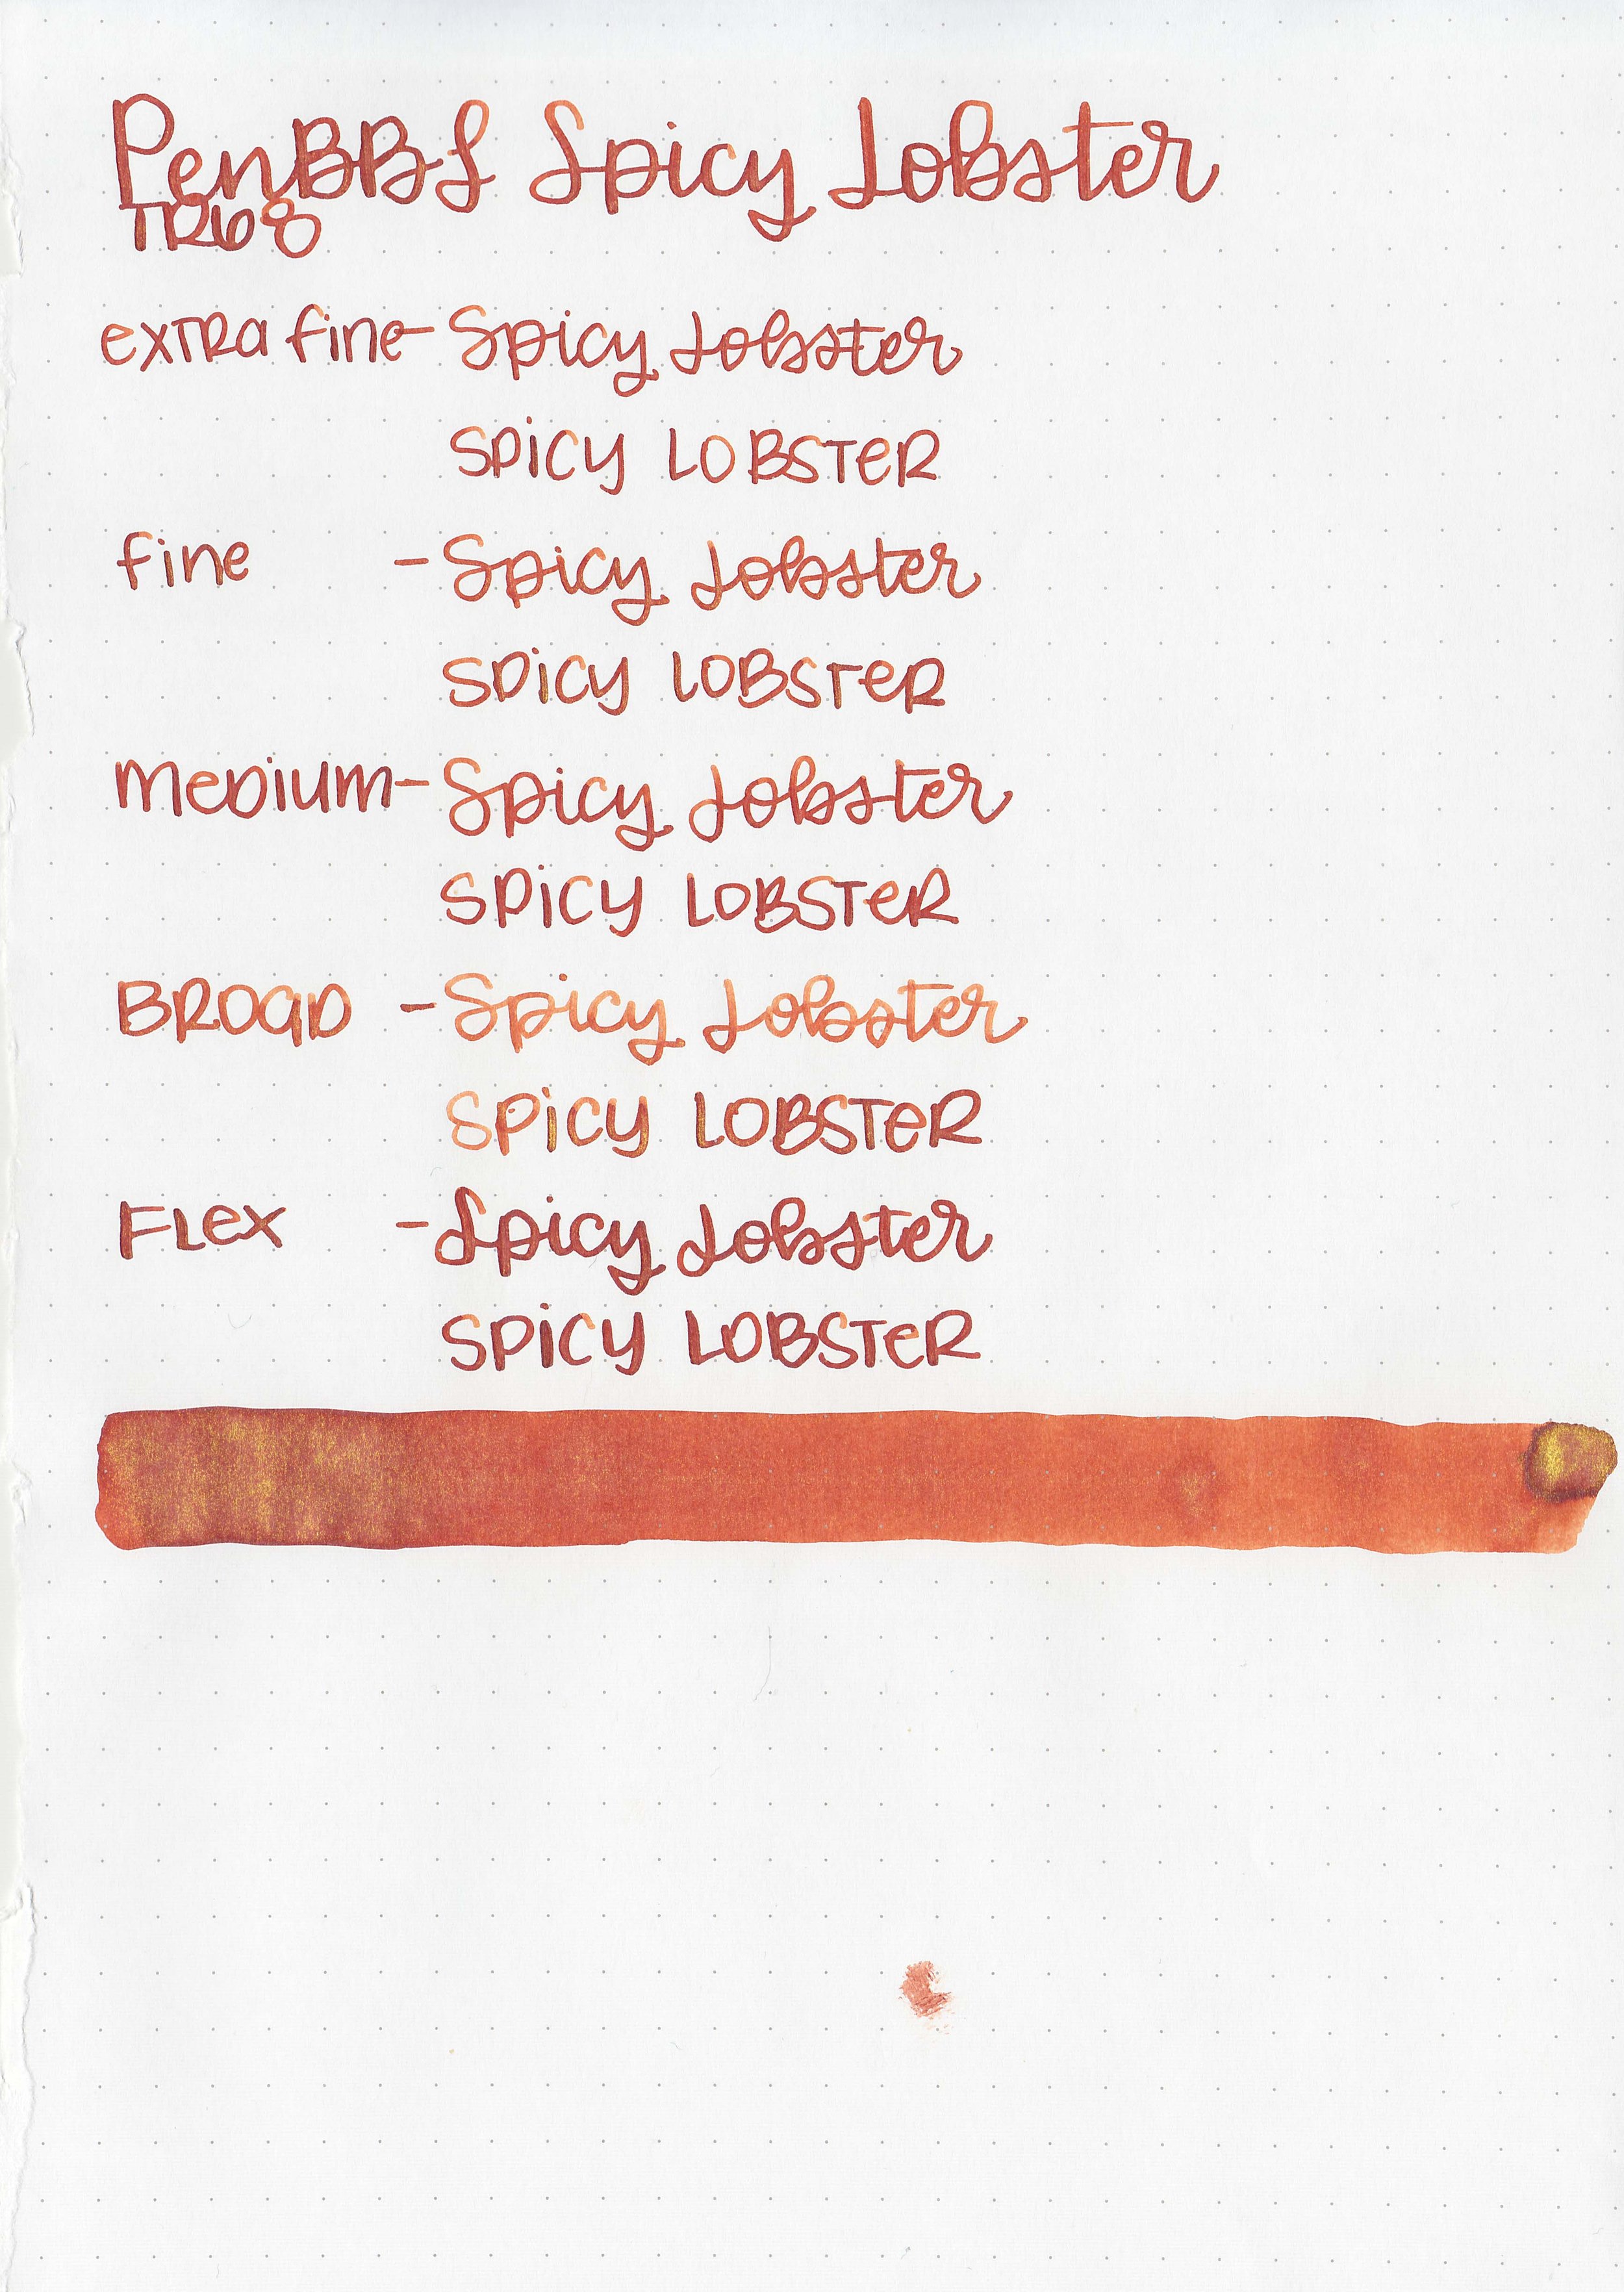 PenBBS Spicy Lobster
TR68
exTRa fine- Spicy Lobster
SPiCY LOBSTeR
fine - Spicy Lobster
SPiCY LOBSTeR
meDium- Spicy Lobster
SPiCY LOBSTeR
BROaD - Spicy Lobster
SPiCY LOBSTeR
FLex - Spicy Lobster
SPiCY LOBSTeR